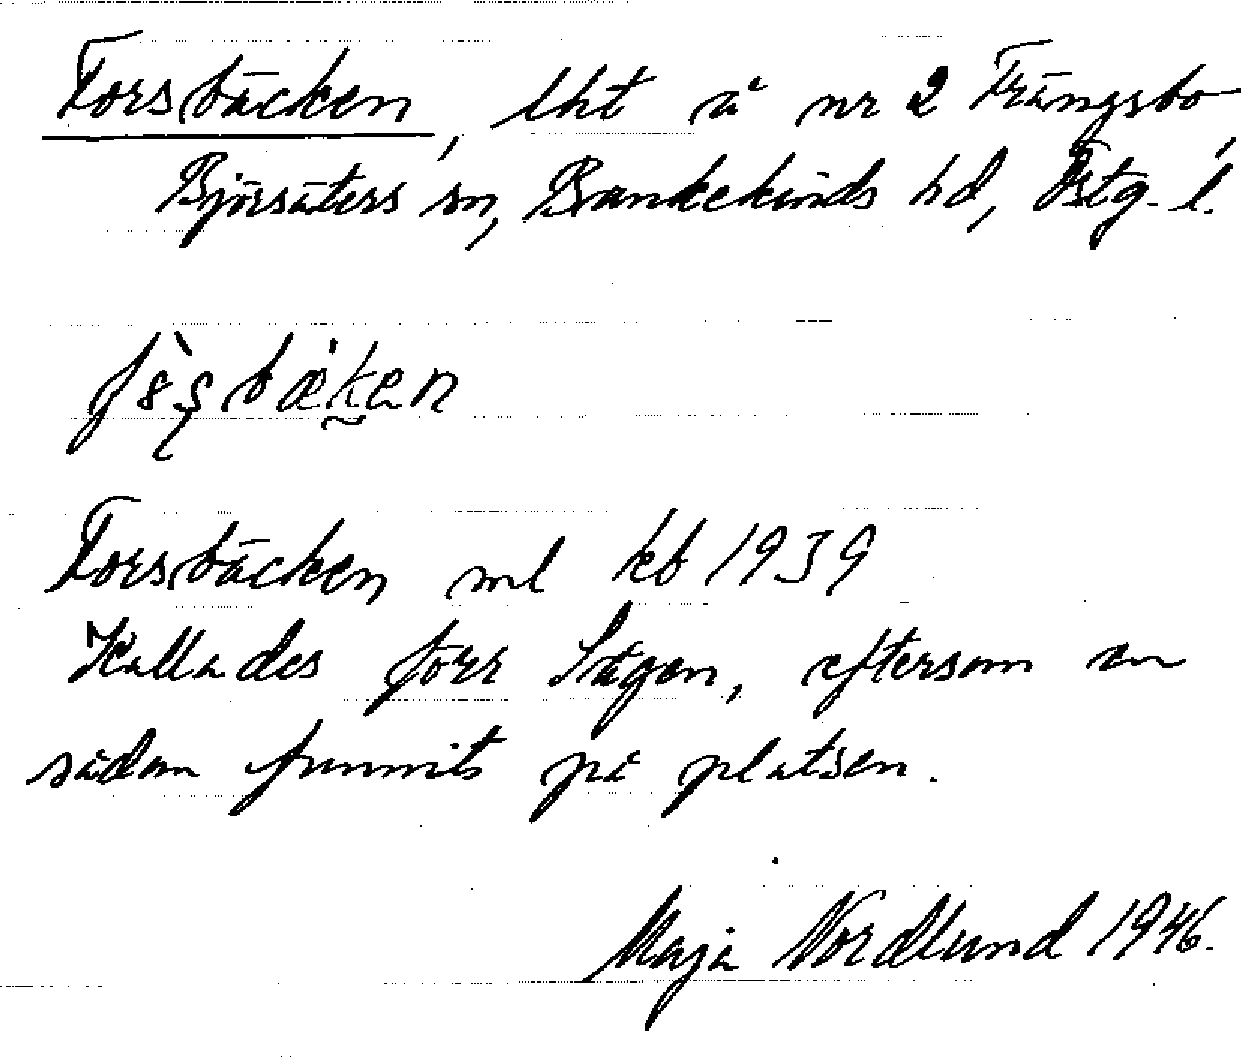 Forsbäcken, lht å nr 2 Frängsbo,
Björsäters sn, Bankekinds hd, Östg. l.
Forsbäcken ml kb 1939
Kallades förr Sågen, eftersom en
sådan funnits på platsen.
Maja Nordlund 1946.